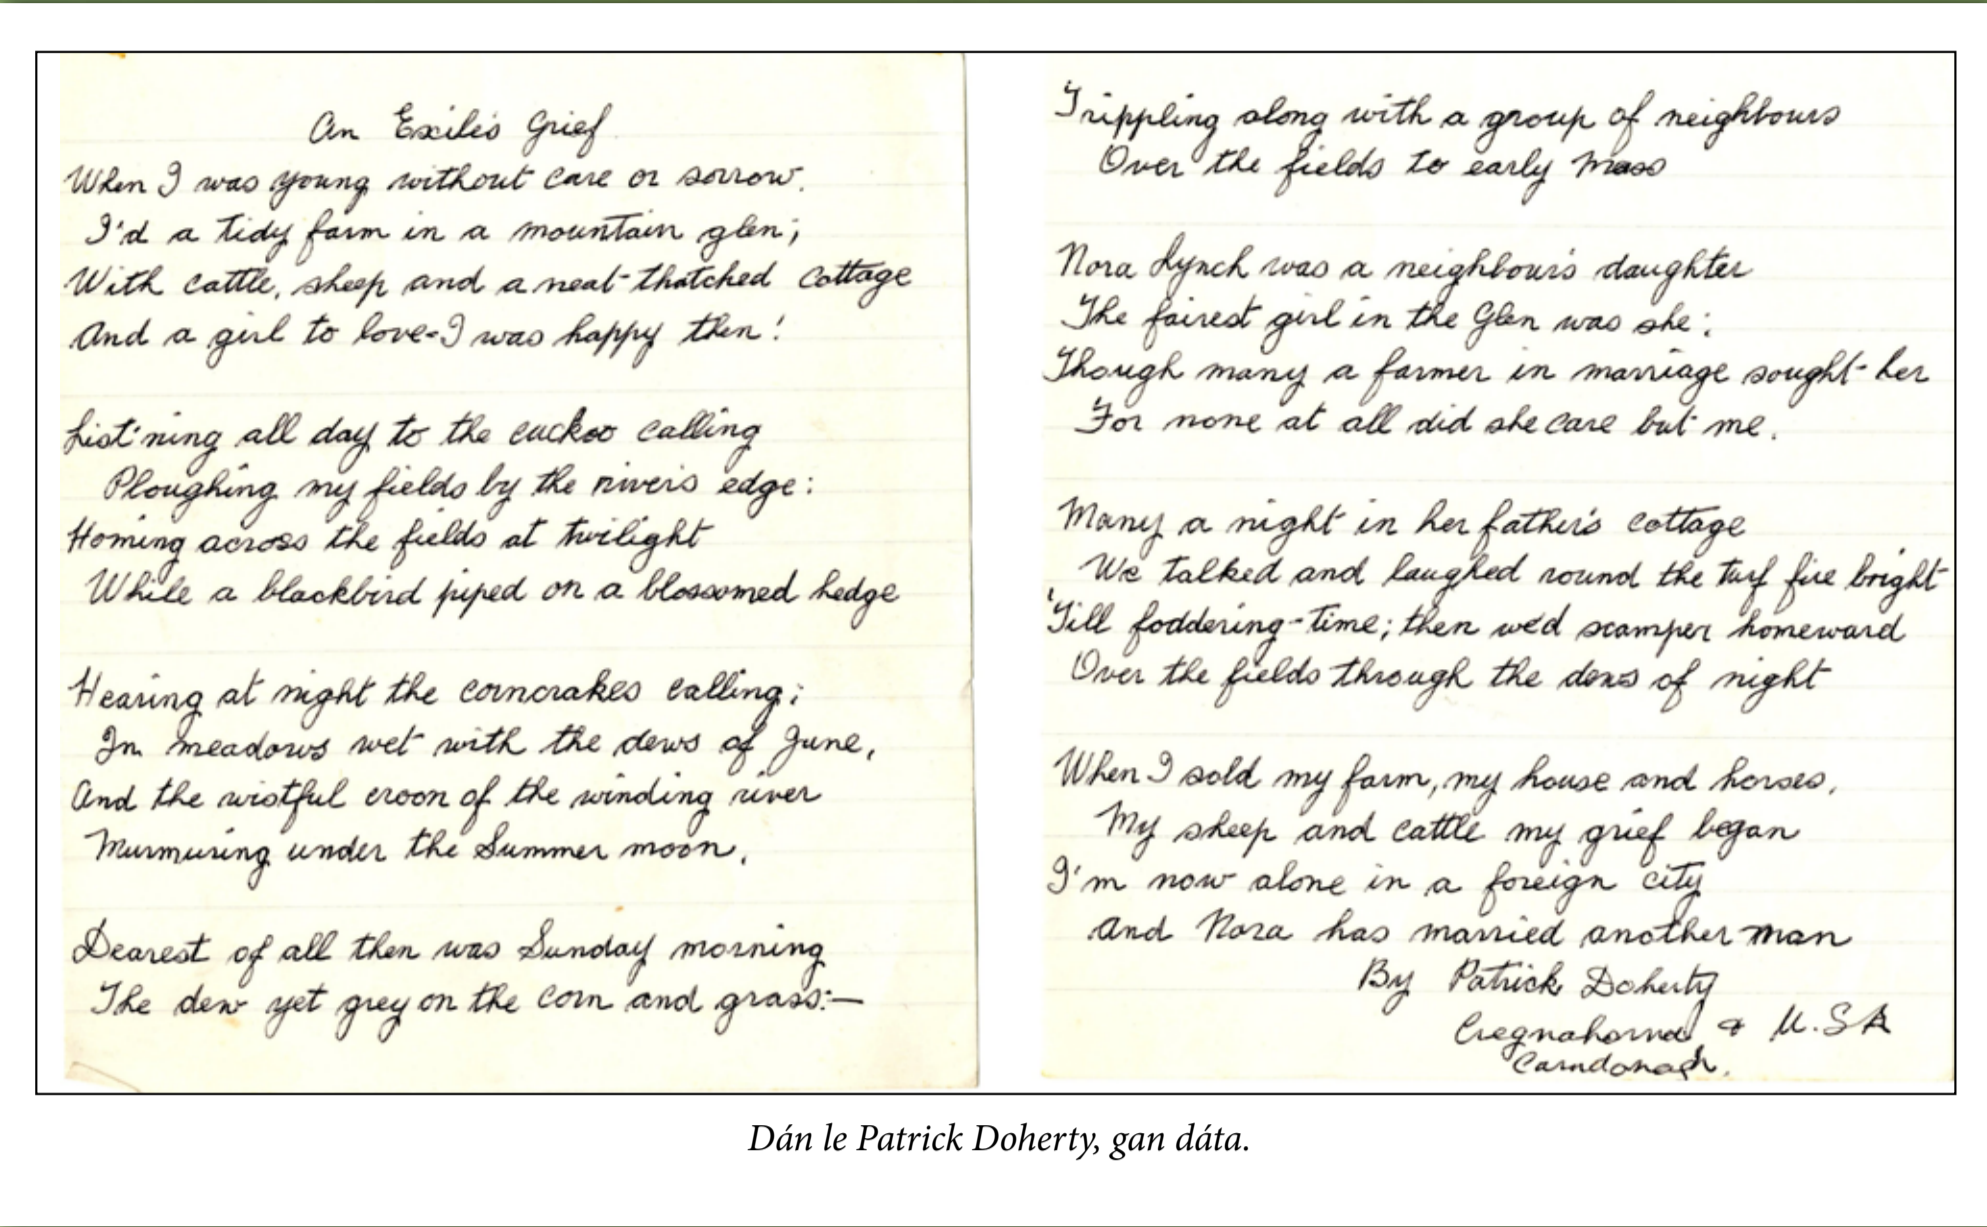 An Exile's Grief
When I was young without care or sorrow.
I'd a tidy farm in a mountain glen;
With cattle, sheep and a neat-thatched cottage
And a girl to love-I was happy then!
List'ning all day to the cuckoo calling
Ploughing my fields by the river's edge:
Homing across the fields at twilight
While a blackbird piped on a blossomed hedge
Hearing at night the corncrakes calling;
In meadows wet with the dews of June,
And the wistful croon of the winding river
Murmuring under the Summer moon.
Dearest of all then was Sunday morning
The dew yet grey on the corn and grass:—
Trippling along with a group of neighbours
Over the fields to early Mass
Nora Lynch was a neighbour's daughter
The fairest girl in the Glen was she:
Though many a farmer in marriage sought her
For none at all did she care but me.
Many a night in her father's cottage
We talked and laughed round the turf fire bright
'Till foddering-time; then we'd scamper homeward
Over the fields through the dews of night
When I sold my farm, my house and horses,
My sheep and cattle my grief began
I'm now alone in a foreign city
And Nora has married another man
By Patrick Doherty
Cregnahorna & U.SA
Carndonagh.
Dán le Patrick Doherty, gan dáta.